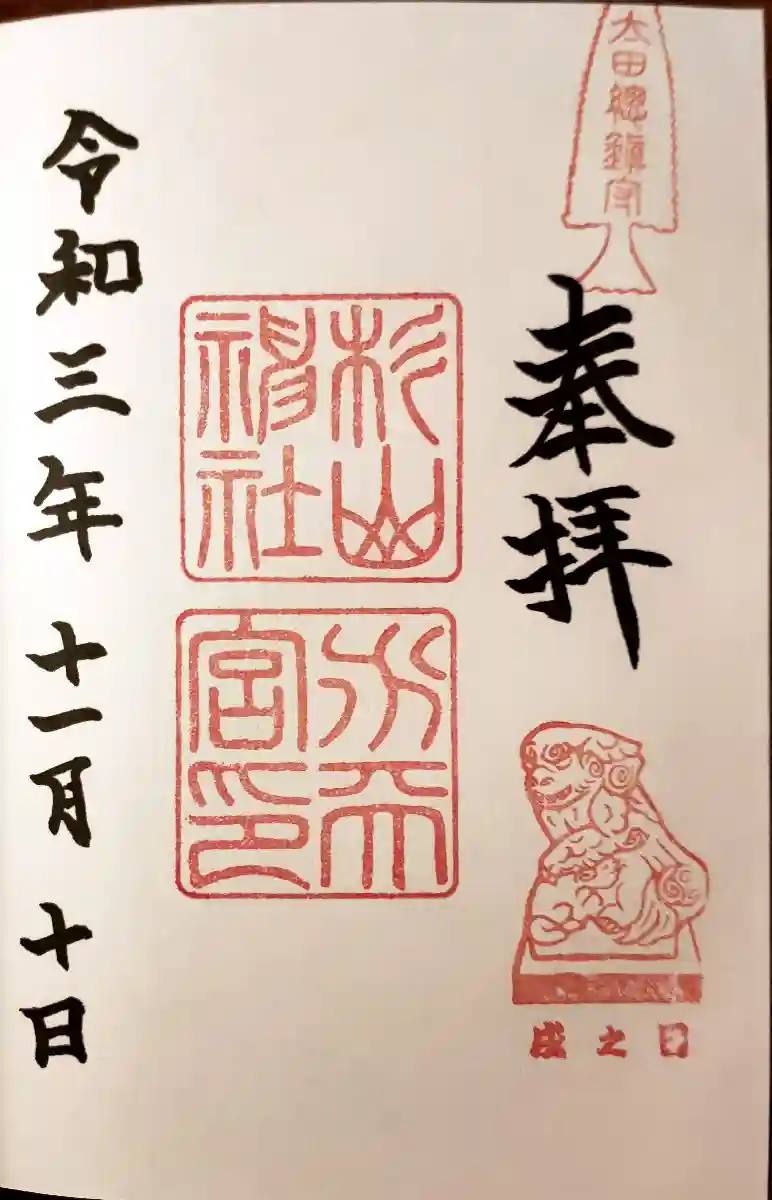 太田總鎮守
奉拝
戌之日
杉山
神社
水天
宮印
令和三年十一月十日